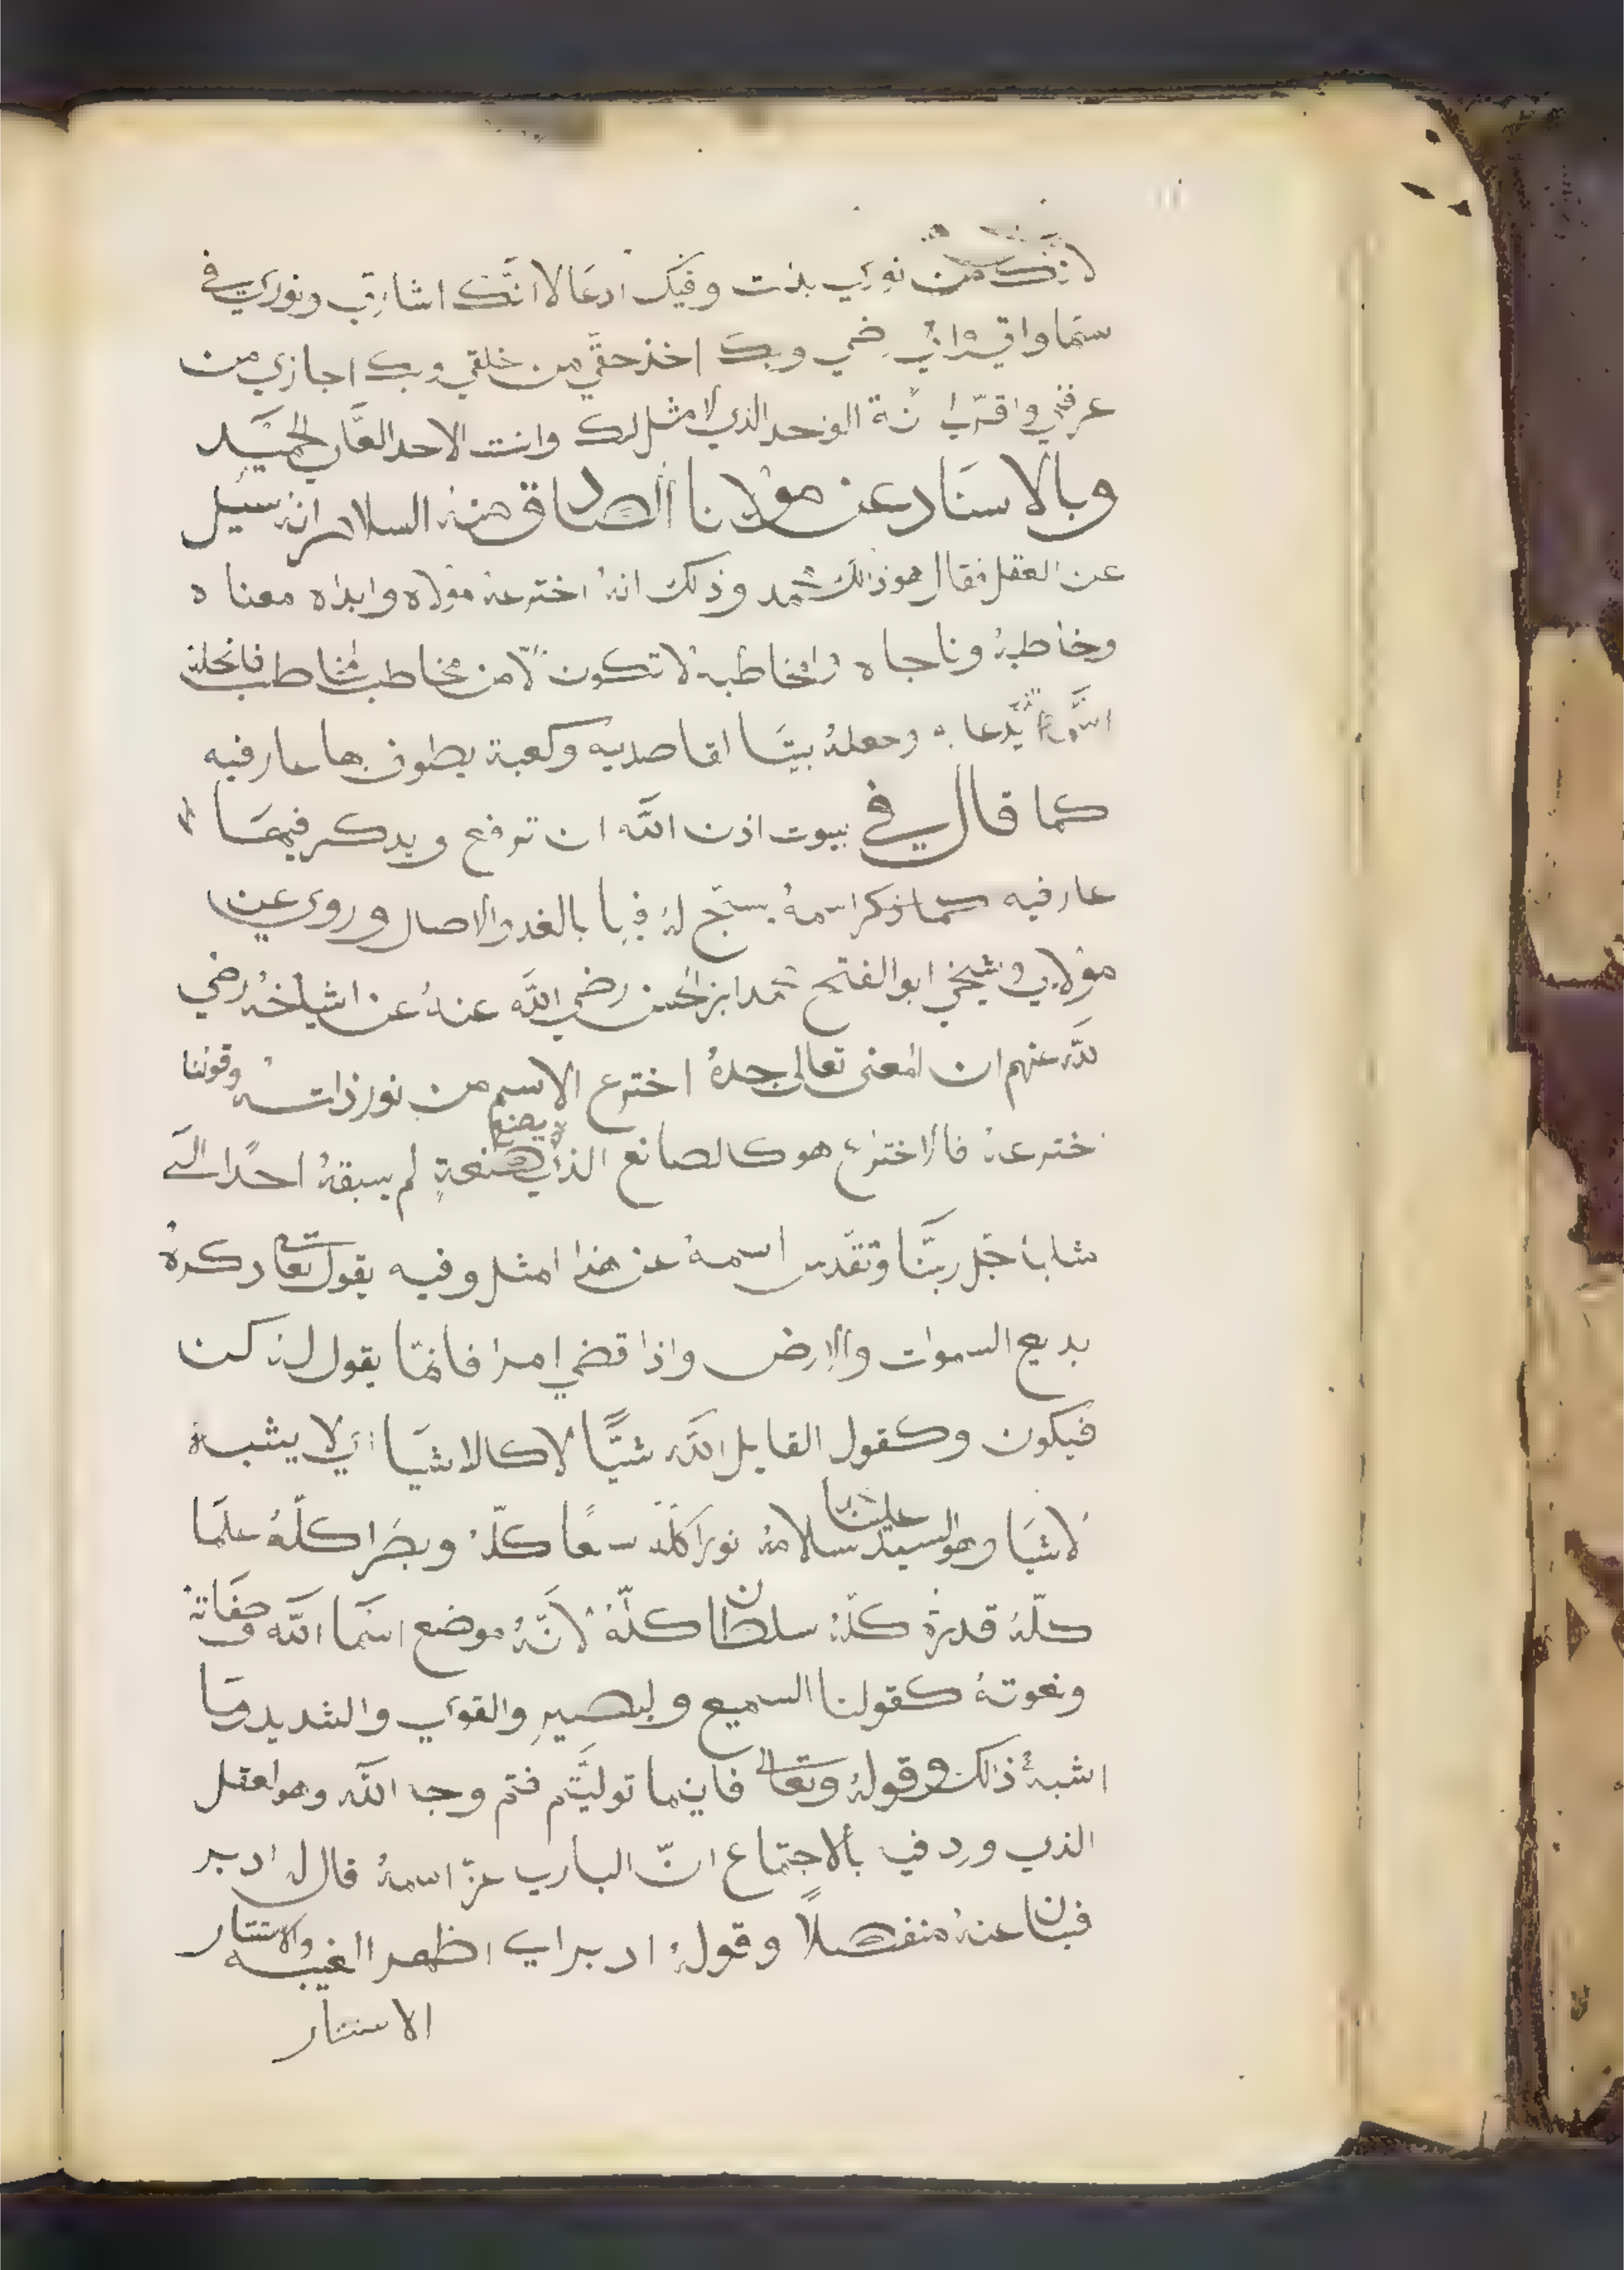 لانك من نوري بذت وفيك ادعا لا انك اشارتي ونوري في
سماواتي وارضي وبك اخذ حقي من خلقي وبك اجازي من
عرفني واقر الوحد الذي لا مثل لك وانت الاحد العالي الحميد
وبالاسناد عن مولانا الصادق منه السلام انه سيل
عن العقل فقال هو ذالك محمد وذلك انه اخترعه مولاه وابداه معناه
وخاطبه وناجاه والمخاطبه لا تكون الا من مخاطب لمخاطب فانحله
اسماء يدعا به وجعله بيتا لقاصديه وكعبة يطوف بها عارفيه
كما قال في بيوت اذن الله ان ترفع ويدكر فيها
عارفيه كما ذكر اسمه يسبح له فيها بالغد والاصال وروي عن
مولاي وشيخي ابو الفتح محمد ابن الحسن رضي الله عنه عن اشياخه رضي
الله عنهم ان المعنى تعالى جده اخترع الاسم من نور ذاته وقولنا
اخترعه فالاختراع هو كالصانع الذي يصنع صنعة لم يسبقه احدا الى
مثلها جل ربنا وتقدس اسمه عن هذا المثل وفيه يقول تعا دكره
بديع السموات والارض واذا قضي امرا فانما يقول له كن
فيكون وكقول القايل الله شيًا لا كالاشيا اي لا يشبه
الاشيا وهو السيد علينا سلامه نورا كله سمعا كله وبصرا كله علما
كله قدرة كله سلطان كله لانه موضع اسما الله وصفاته
ونعوته كقولنا السميع ولبصير والقوي والشديد وما
اشبه ذالك وقوله وتعالى فاينما توليتم فتم وجه الله وهو لعقل
الذي ورد في بالاجتماع ان الباري عز اسمه قال له ادبر
فبان عنه منفصلاً وقوله ادبر اي اظهر الغيبه والاستتار
الاستتار